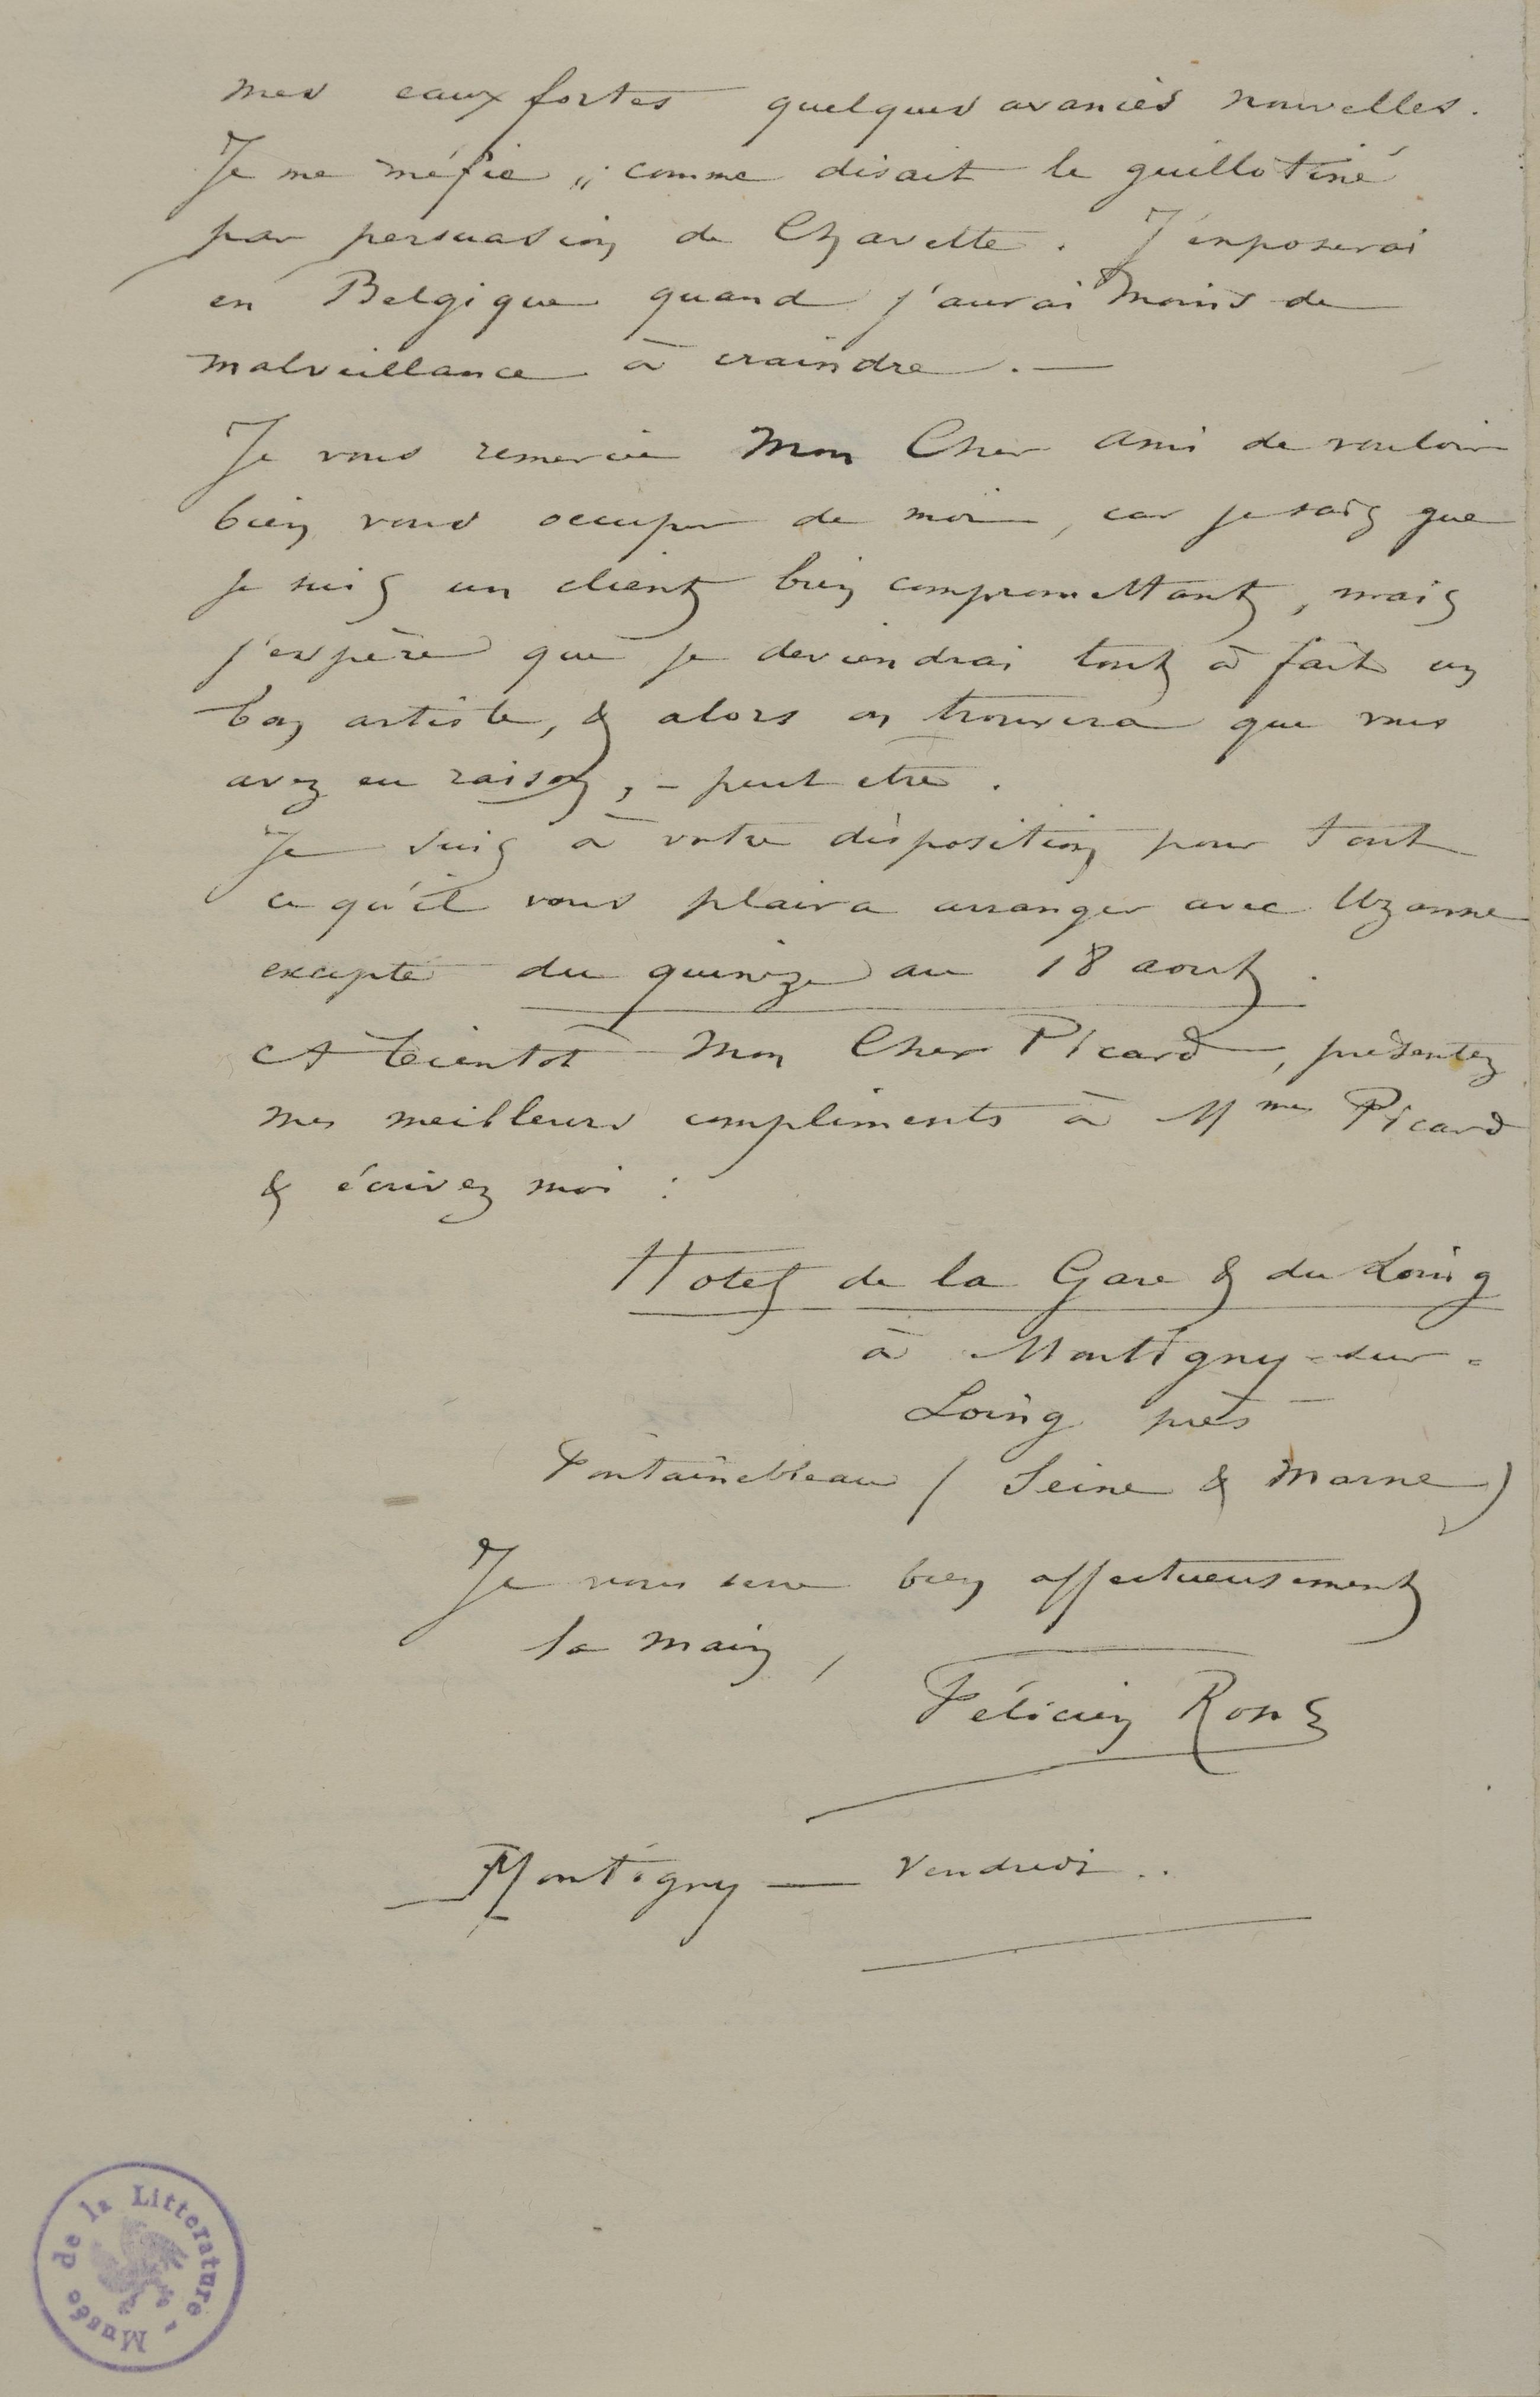 mes eaux fortes quelques avanies nouvelles.
Je me méfie „ comme disait le guillotiné
par persuasion de Chavette. J'exposerai
en Belgique quand j'aurai moins de
malveillance à craindre. —
Je vous remercie Mon Cher Ami de vouloir
bien vous occuper de moi, car je sais que
je suis un client bien compromettant, mais
j'espère que je deviendrai tout à fait un
bon artiste, & alors on trouvera que vous
avez eu raison, – peut etre.
Je suis à votre disposition pour tout
ce qu'il vous plaira arranger avec Uzanne
excepté du quinze au 18 aout.
A bientot Mon Cher Picard, présentez
mes meilleurs compliments à Mme Picard
& écrivez moi :
Hotel de la Gare & du Loing
à Montigny-sur-
Loing près
Fontainebleau (Seine & Marne)
Je vous serre bien affectueusement
la main,
Félicien Rops
Montigny — Vendredi..
Musée de la Littérature -